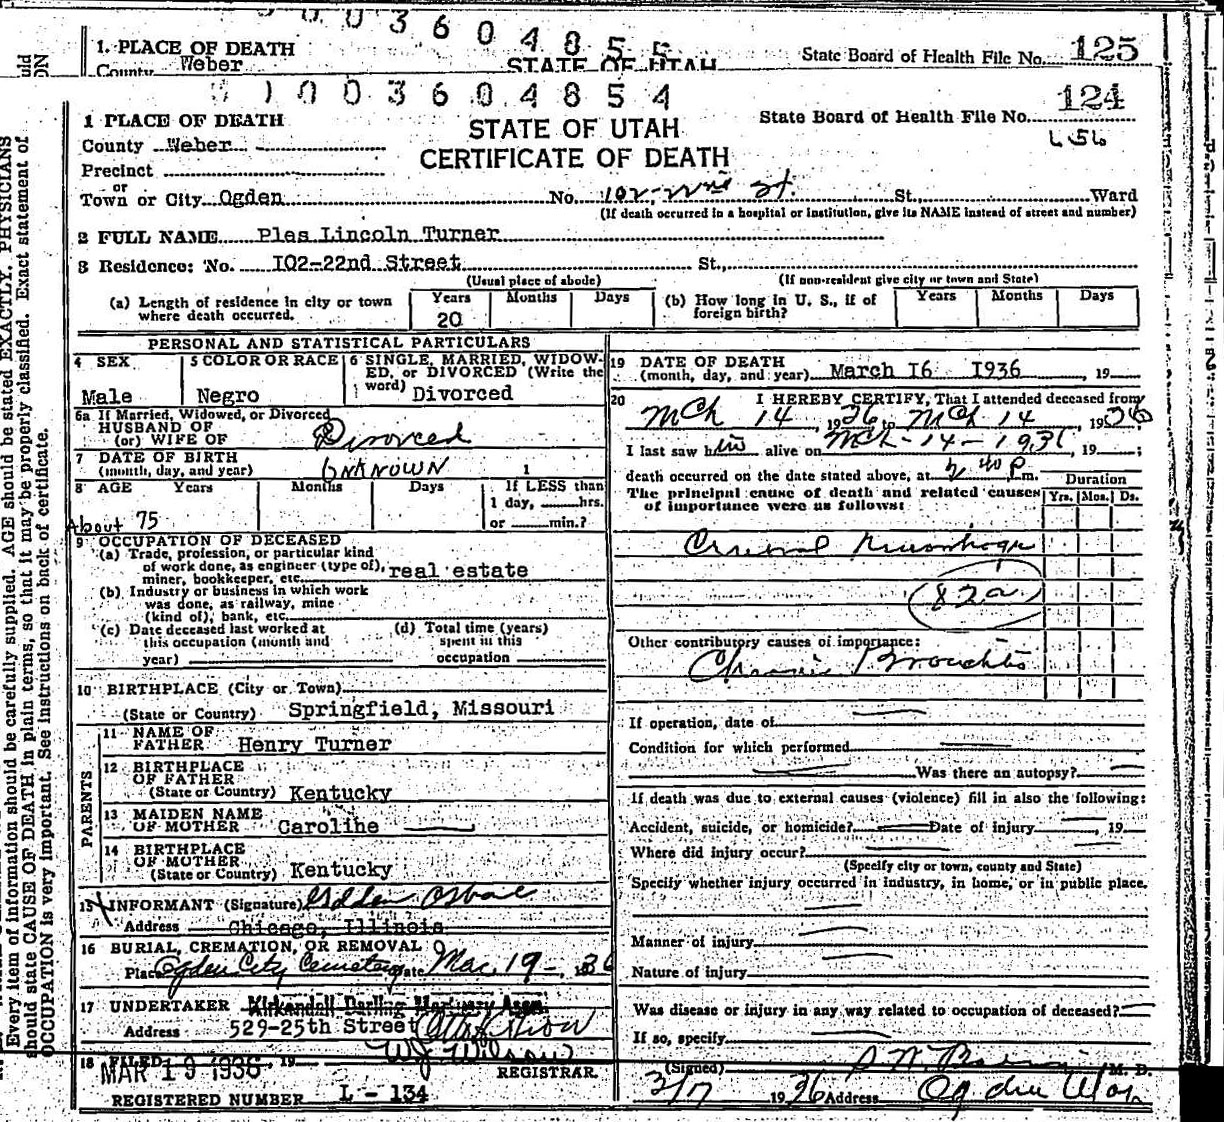 1. PLACE OF DEATH
County Weber
STATE OF UTAH
State Board of Health File No. 125
1003604854
124
1 PLACE OF DEATH
STATE OF UTAH
State Board of Health File No.
County Weber
CERTIFICATE OF DEATH
656
Precinct
or
Town or City Ogden No. 102-22nd St. St., Ward
(If death occurred in a hospital or institution, give its NAME instead of street and number)
2 FULL NAME Ples Lincoln Turner
3 Residence: No. I02-22nd Street St.,
(Usual place of abode) (If non-resident give city or town and State)
(a) Length of residence in city or town where death occurred. Years 20 Months Days
(b) How long in U. S., if of foreign birth? Years Months Days
PERSONAL AND STATISTICAL PARTICULARS
4 SEX Male
5 COLOR OR RACE Negro
6 SINGLE, MARRIED, WIDOWED, or DIVORCED (Write the word) Divorced
6a If Married, Widowed, or Divorced
HUSBAND OF
(or) WIFE OF Divorced
7 DATE OF BIRTH
(month, day, and year) UNKNOWN 1
8 AGE Years Months Days If LESS than
1 day, hrs.
About 75 or min.?
9 OCCUPATION OF DECEASED
(a) Trade, profession, or particular kind
of work done, as engineer (type of),
miner, bookkeeper, etc. real estate
(b) Industry or business in which work
was done, as railway, mine
(kind of), bank, etc.
(c) Date deceased last worked at
this occupation (month and
year)
(d) Total time (years)
spent in this
occupation
10 BIRTHPLACE (City or Town)
(State or Country) Springfield, Missouri
PARENTS
11 NAME OF
FATHER Henry Turner
12 BIRTHPLACE
OF FATHER
(State or Country) Kentucky
13 MAIDEN NAME
OF MOTHER Caroline
14 BIRTHPLACE
OF MOTHER
(State or Country) Kentucky
15 INFORMANT (Signature)
Address Chicago, Illinois
16 BURIAL, CREMATION, OR REMOVAL
Place Ogden City Cemetery Date Mac. 19-, 1936
17 UNDERTAKER Kirkendall Darling Mortuary Assn.
Address 529-25th Street
18 FILED MAR 19 1936, 19 W J Wilson
REGISTRAR.
REGISTERED NUMBER L - 134
19 DATE OF DEATH
(month, day, and year) March I6 I936, 19
20 I HEREBY CERTIFY, That I attended deceased from
Mch 14, 1936 to Mch 14, 1936
I last saw him alive on Mch-14-1936, 19 ;
death occurred on the date stated above, at 40 P.m.
The principal cause of death and related causes
of importance were as follows:
Duration
Yrs. Mos. Ds.
Cerebral Hemorrhage
(82a)
Other contributory causes of importance:
Chronic Bronchitis
If operation, date of
Condition for which performed
Was there an autopsy?
If death was due to external causes (violence) fill in also the following:
Accident, suicide, or homicide? Date of injury , 19
Where did injury occur?
(Specify city or town, county and State)
Specify whether injury occurred in industry, in home, or in public place.
Manner of injury
Nature of injury
Was disease or injury in any way related to occupation of deceased?
If so, specify
(Signed) M. D.
3/17 1936 Address Ogden Utah
Every item of information should be carefully supplied. AGE should be stated EXACTLY. PHYSICIANS
should state CAUSE OF DEATH in plain terms, so that it may be properly classified. Exact statement of
OCCUPATION is very important. See instructions on back of certificate.